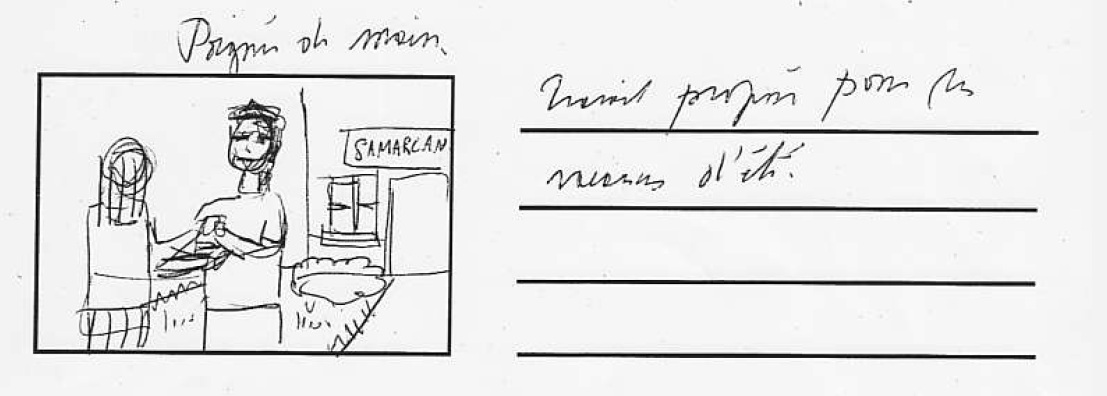 Poignée de main.
SAMARCAN
Travail proposé pour les
vacances d'été.